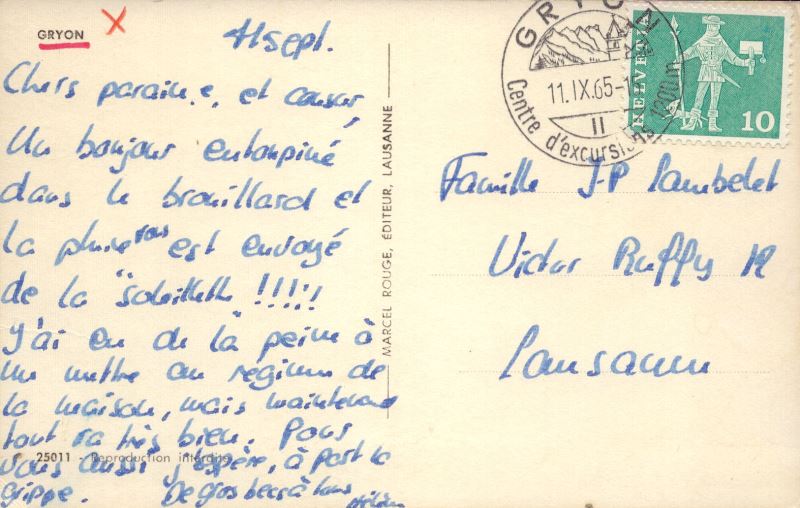 GRYON
11 sept.
Chers parain.e. et cousur,
Un bonjour entonpiné
dans le brouillard et
la pluie vous est envoyé
de la "soleillette" !!!!!
J'ai eu de la peine à
me mettre au régime de
la maison, mais maintenant
tout va très bien. Pour
vous aussi j'espère, à part la
grippe. De gros becs à tous
25011 - Reproduction interdite
MARCEL ROUGE, ÉDITEUR, LAUSANNE
GRYON
11.IX.65-1
II
Centre d'excursions 1200m
HELVETIA
10
Famille J-P Lambelet
Victor Ruffy
Lausanne